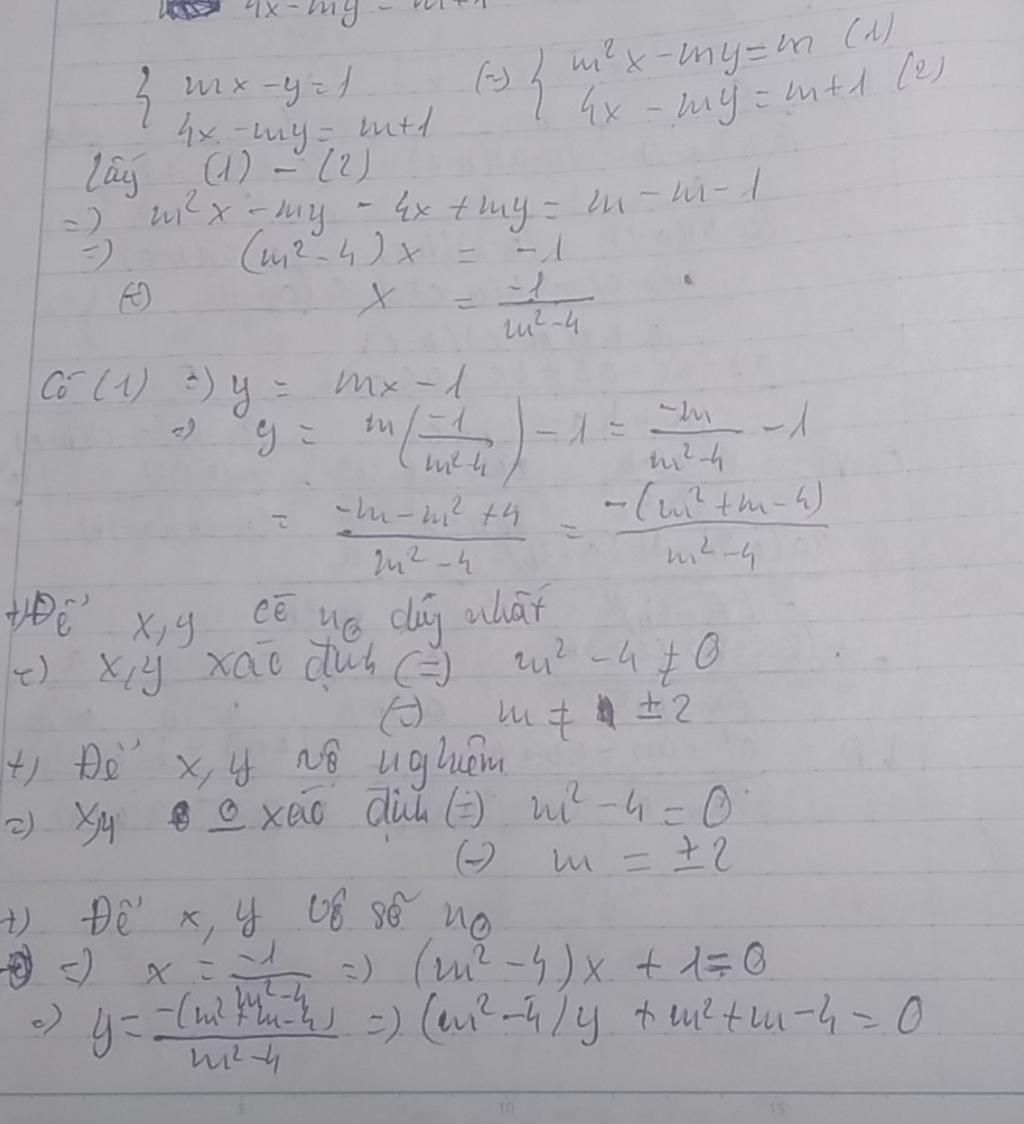 4x - my = m+1
{ mx - y = 1 (=) { m²x - my = m (1)
4x - my = m+1 4x - my = m+1 (2)
lấy (1) - (2)
=) m²x - my - 4x + my = m - m - 1
=) (m² - 4) x = -1
(=) x = -1/(m²-4)
Có (1) =) y = mx - 1
=) y = m(-1/(m²-4)) - 1 = -m/(m²-4) - 1
= (-m - m² + 4)/(m² - 4) = -(m² + m - 4)/(m² - 4)
+) Để x, y có n0 duy nhất
=) x, y xác định (=) m² - 4 ≠ 0
(=) m ≠ ±2
+) Để x, y vô nghiệm
=) x,y 0 xác định (=) m² - 4 = 0
(=) m = ±2
+) Để x, y vô số n0
=) x = -1/(m²-4) =) (m² - 4)x + 1 = 0
=) y = -(m²+m-4)/(m²-4) =) (m² - 4)y + m² + m - 4 = 0
5 10 15